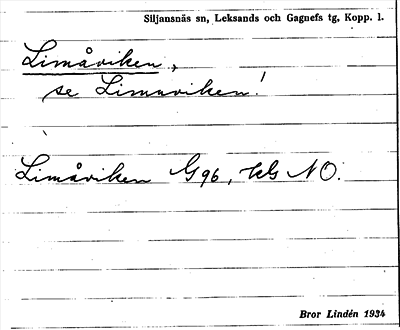 Siljansnäs sn, Leksands och Gagnefs tg, Kopp. l.
Limåviken,
se Limaviken!
Limåviken G96, kls NO.
Bror Lindén 1934